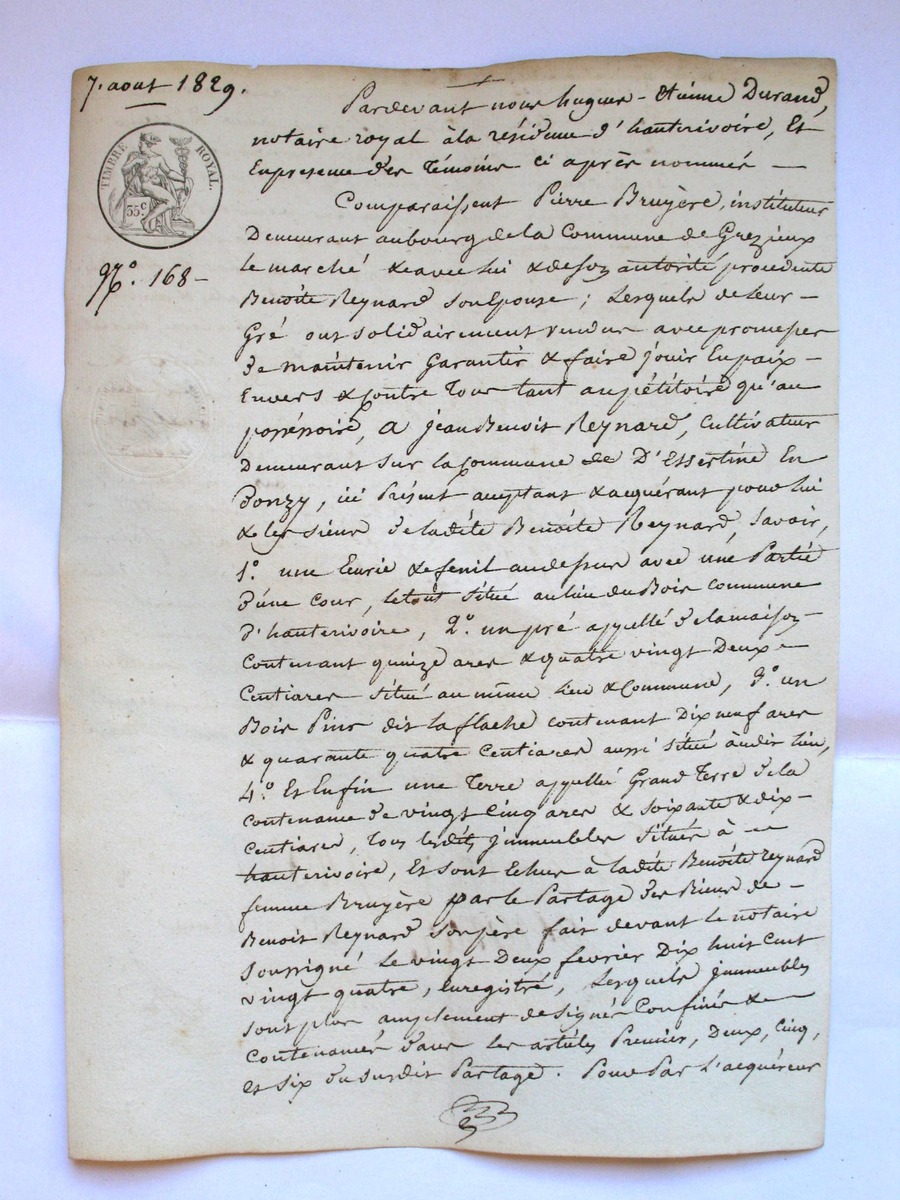 7. aout 1829.
TIMBRE ROYAL.
35c
No. 168 -
Pardevant nous hugues - Etienne Durand,
notaire royal à la résidence d'hauterivoire, Et
En presence des Témoins ci après nommés -
Comparaissent Pierre Bruyère, instituteur
Demeurant au bourg de la Commune de Grezieux
le marché & avec lui & de son autorité procédente
Benoîte Reynard son Epouse ; Lesquels de Leur -
Gré ont solidairement vendus avec promesses
De maintenir Garantir & faire jouir En paix -
Envers & Contre Tous tant au pétitoire qu'au
possessoire, à jean Benoit Reynard, Cultivateur
Demeurant sur la Commune de D'Essertine En
Donzy, ici Présent acceptant & acquérant pour lui
& les siens De ladite Benoîte Reynard, Savoir,
1o. une Ecurie & fenil au dessus avec une Partie
D'une Cour, le tout situé au lieu du Bois commune
d'hauterivoire, 2o. un pré appellé De la maison
Contenant quinze ares & quatre vingt Deux -
Centiares situé au même Lieu & Commune, 3o. un
Bois Pins dit la flache contenant Dix neuf ares
& quarante quatre Centiares aussi situé audit lieu,
4o. Et Enfin une Terre appellée Grand Terre De la
contenance De vingt Cinq ares & soixante & dix -
Centiares, Tous lesdits jmmeubles situés à -
hauterivoire, Et sont Echus à ladite Benoîte Reynard
femme Bruyère par le Partage Des Biens de -
Benoit Reynard son père fait devant le notaire
soussigné Le vingt Deux février Dix huit Cent
vingt quatre, Enregistré, Lesquels jmmeubles
sont plus amplement designés Confinés & -
Contenancés Dans Les articles Premier, Deux, Cinq,
Et Six Du susdit Partage. Pour Par L'acquéreur